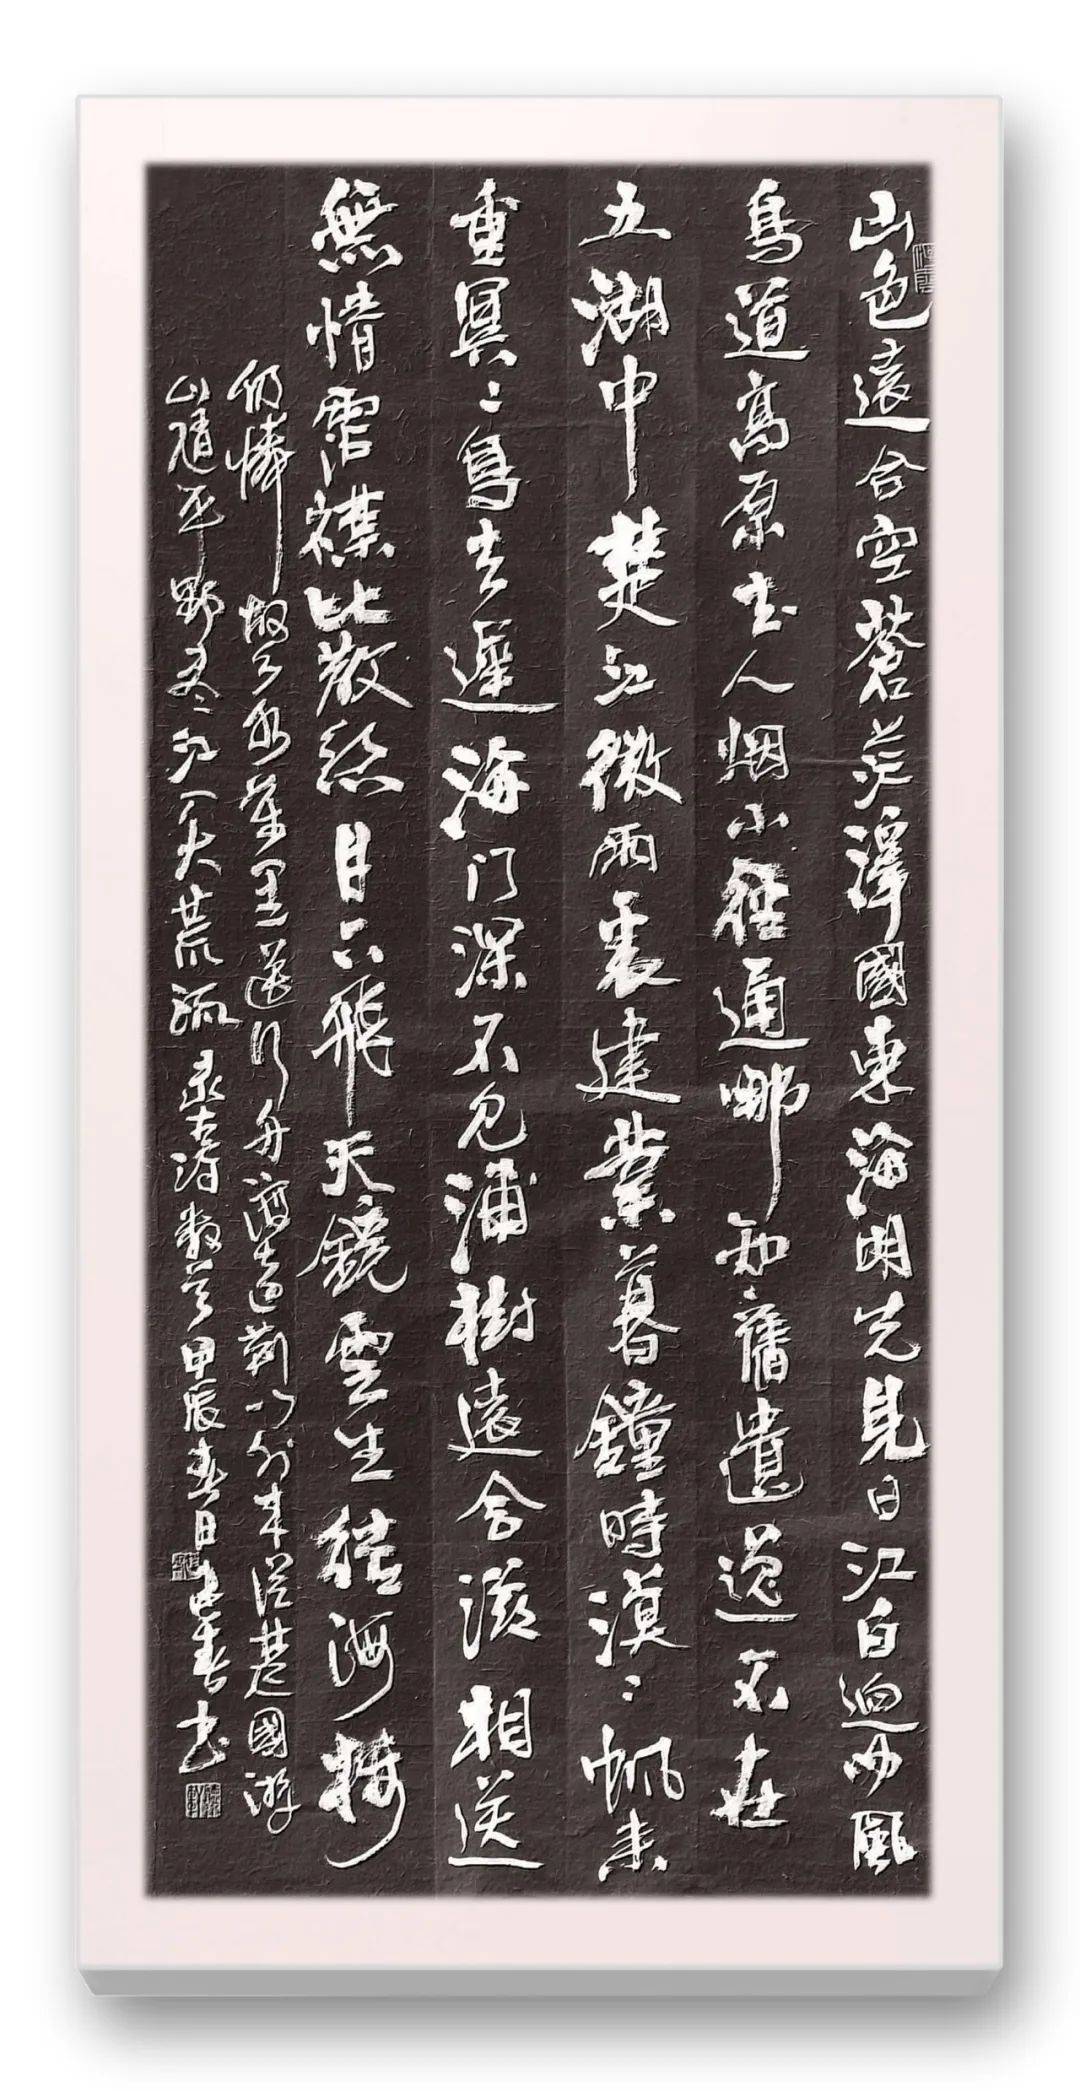 山色遠含空蒼茫澤國東海明先見日江白迥聞風
鳥道高原去人烟小徑通那知舊遺逸不在
五湖中楚江微雨裏建業暮鐘時漠〻帆來
重冥〻鳥去遲海門深不見浦樹遠含滋相送
無情霑襟比散絲月下飛天鏡雲生結海樓
仍憐故鄉水萬里送行舟渡遠荊门外來從楚國游
山隨平野尽江入大荒流 录古詩數首甲辰春日建春书